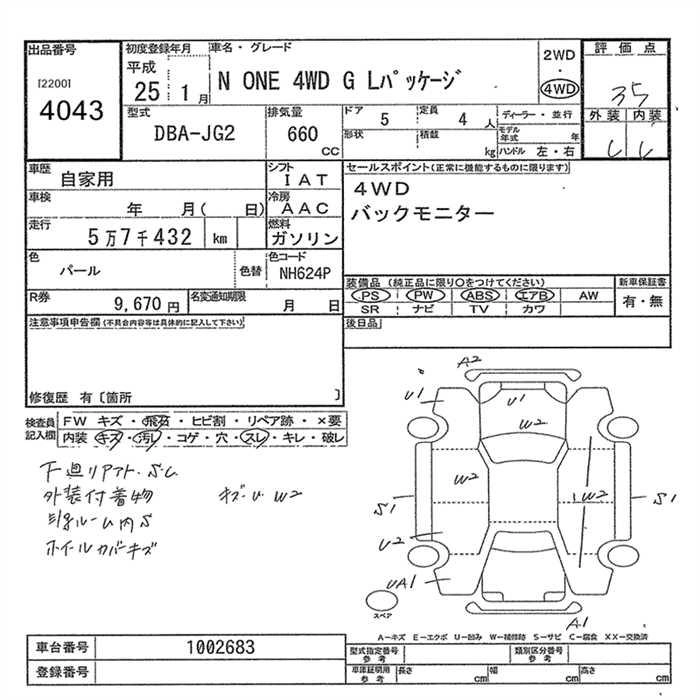 出品番号
[2200]
4043
初度登録年月
平成
25 1月
車名・グレード
N ONE 4WD G Lパッケージ
2WD
・
4WD
評価点
35
外装 内装
型式
DBA-JG2
排気量
660
CC
ドア 5
定員 4 人
形状
積載
kg
ディーラー・並行
モデル年式 年
ハンドル 左・右
車歴 自家用
シフト
IAT
車検 年 月( 日)
冷房
AAC
走行 5万7千432 km
燃料
ガソリン
色
パール
色替
色コード
NH624P
R券 9,670円
名変通知期限
月 日
セールスポイント(正常に機能するものに限ります)
4WD
バックモニター
装備品 (純正品に限り○をつけてください)
PS PW ABS エアB AW
SR ナビ TV カワ
新車保証書
有・無
後日品
注意事項申告欄(不具合内容等は具体的に記入して下さい)
修復歴 有〔箇所 〕
検査員
記入欄
FW キズ・飛石・ヒビ割・リペア跡・×要
内装 キズ・汚レ・コゲ・穴・スレ・キレ・破レ
外装付着物
キズ・U W2
ホイルカバーキズ
A2
U1
U1
W2
W2
W2
S1
S1
U2
UA1
A1
スペア
A―キズ E―エクボ U―凹み W―補修跡 S―サビ C―腐食 XX―交換済
車台番号 1002683
登録番号
型式指定番号
参考
類別区分番号
参考
車庫証明用
参考
長さ cm 幅 cm 高さ cm